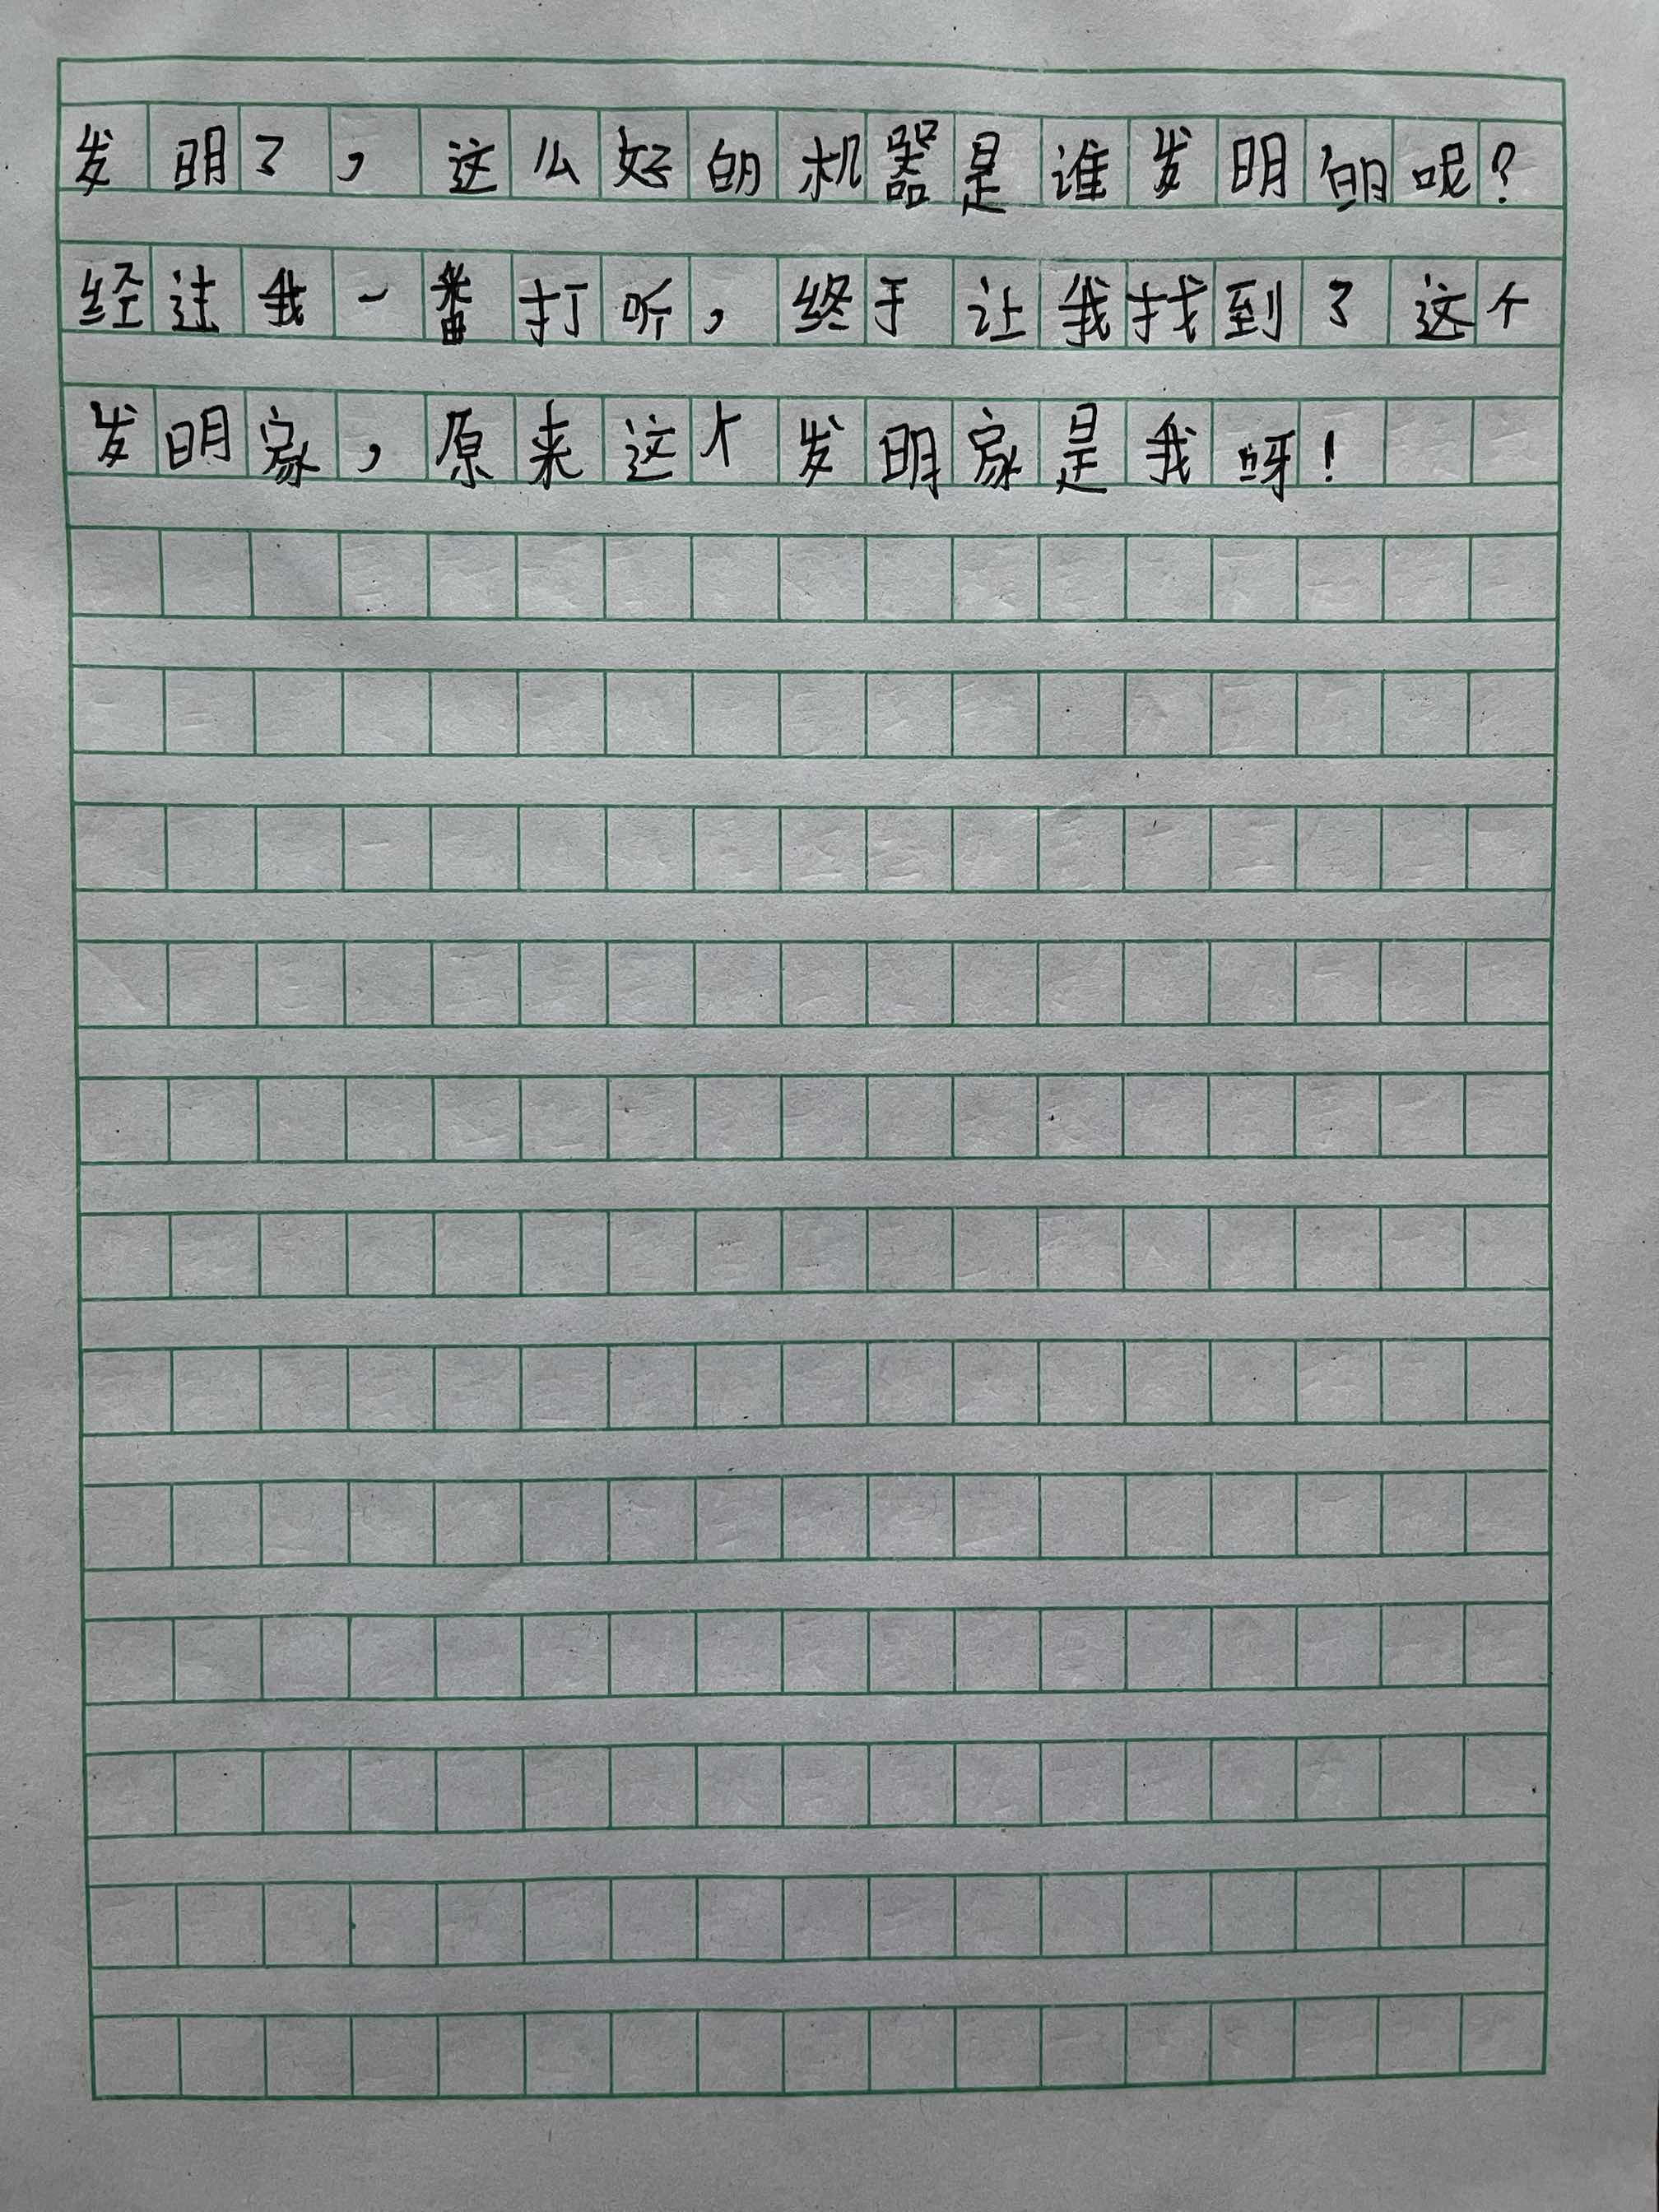 发明了，这么好的机器是谁发明的呢？
经过我一番打听，终于让我找到了这个
发明家，原来这个发明家是我呀！